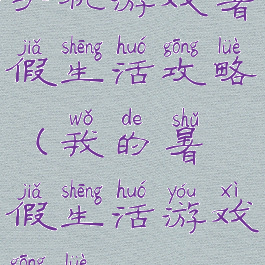 游戏暑
jiǎ shēng huó gōng lüè
假生活攻略
wǒ de shǔ
（我的暑
jiǎ shēng huó yóu xì
假生活游戏
gōng lüè